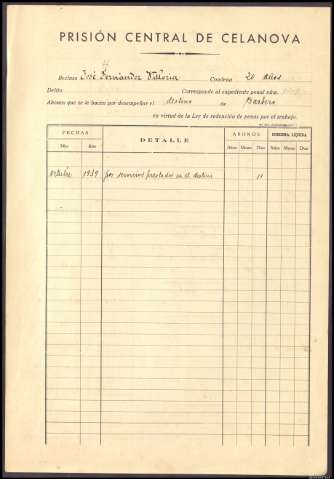 PRISIÓN CENTRAL DE CELANOVA
4
Recluso José Fernández Condena 20 años
Delito Corresponde al expediente penal núm.
Abonos que se le hacen por desempeñar el destino de Barbero
en virtud de la Ley de redención de penas por el trabajo.
FECHAS DETALLE ABONOS REDENCIÓN LÍQUIDA
Mes Año Años Meses Días Años Meses Días
octubre 1939 por servicios prestados en el destino 11